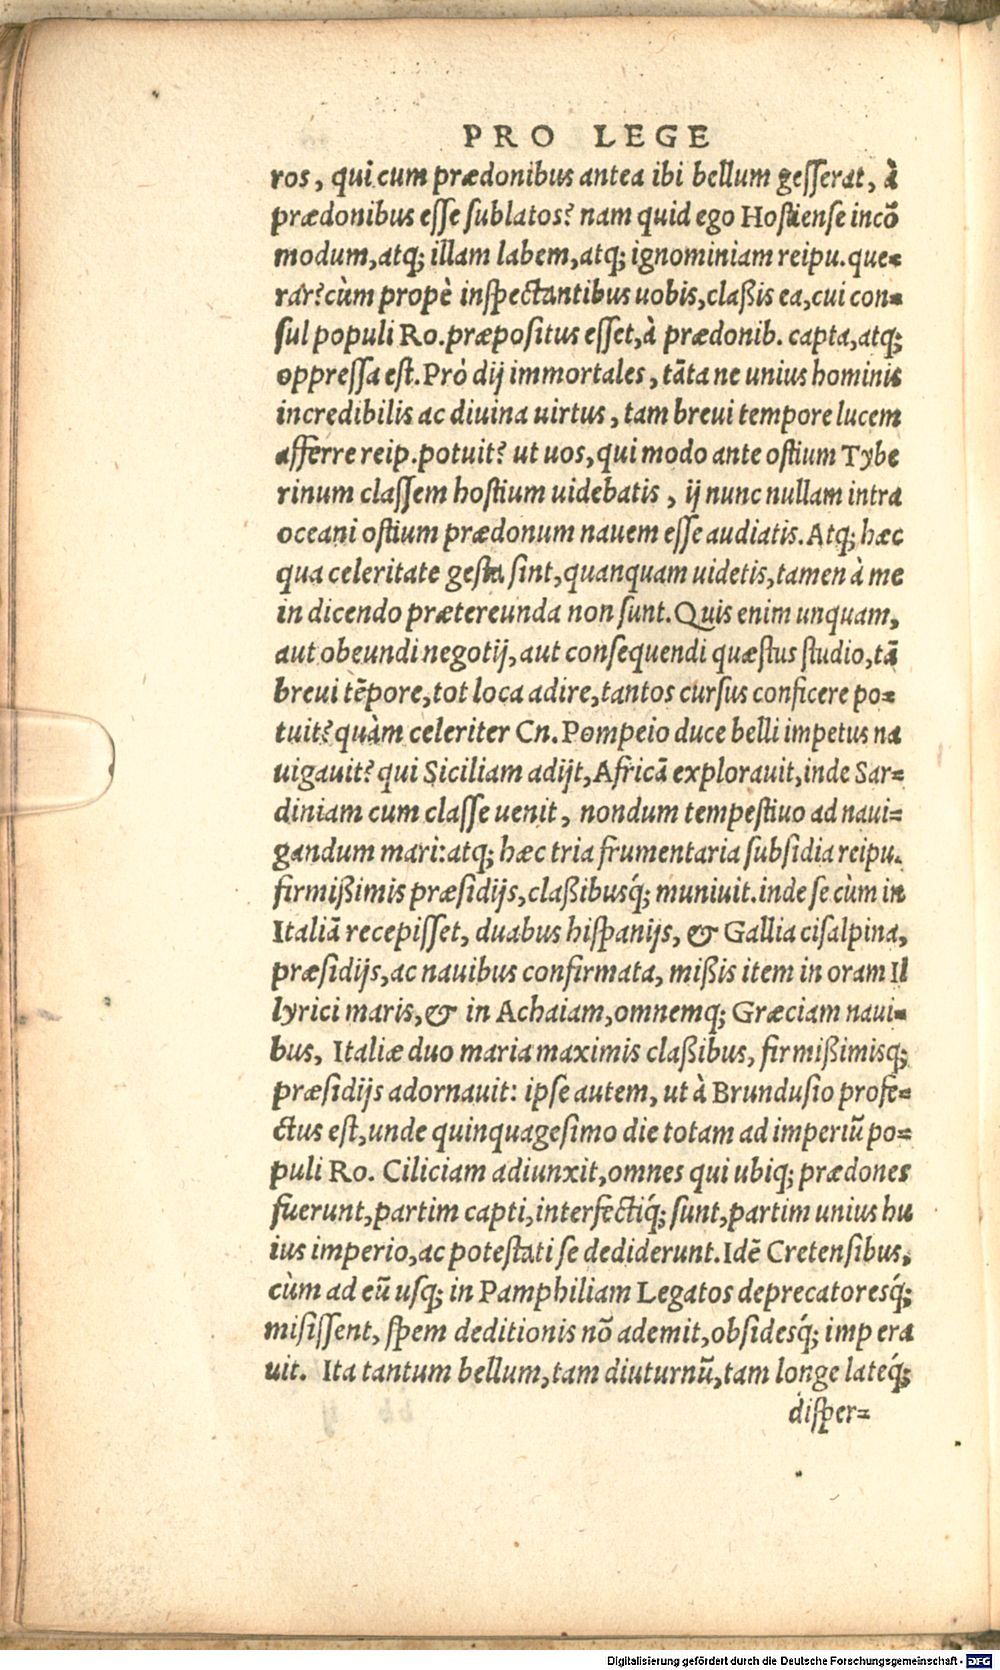 PRO LEGE
ros, qui cum prædonibus antea ibi bellum gesserat, à
prædonibus esse sublatos? nam quid ego Hostiense incō
modum, atq; illam labem, atq; ignominiam reipu. que-
rar? cùm propè inspectantibus uobis, claßis ea, cui con-
sul populi Ro. præpositus esset, à prædonib. capta, atq;
oppressa est. Prò dij immortales, tāta ne unius hominis
incredibilis ac diuina uirtus, tam breui tempore lucem
afferre reip. potuit? ut uos, qui modo ante ostium Tybe
rinum classem hostium uidebatis, ij nunc nullam intra
oceani ostium prædonum nauem esse audiatis. Atq; hæc
qua celeritate gesta sint, quanquam uidetis, tamen à me
in dicendo prætereunda non sunt. Quis enim unquam,
aut obeundi negotij, aut consequendi quæstus studio, tā
breui tēpore, tot loca adire, tantos cursus conficere po-
tuit? quàm celeriter Cn. Pompeio duce belli impetus na
uigauit? qui Siciliam adijt, Africā explorauit, inde Sar-
diniam cum classe uenit, nondum tempestiuo ad naui-
gandum mari: atq; hæc tria frumentaria subsidia reipu.
firmißimis præsidijs, claßibusq́; muniuit. inde se cùm in
Italiā recepisset, duabus hispanijs, & Gallia cisalpina,
præsidijs, ac nauibus confirmata, mißis item in oram Il
lyrici maris, & in Achaiam, omnemq; Græciam naui-
bus, Italiæ duo maria maximis claßibus, firmißimisq;
præsidijs adornauit: ipse autem, ut à Brundusio profe-
ctus est, unde quinquagesimo die totam ad imperiū po-
puli Ro. Ciliciam adiunxit, omnes qui ubiq; prædones
fuerunt, partim capti, interfectiq́; sunt, partim unius hu
ius imperio, ac potestati se dediderunt. Idē Cretensibus,
cùm ad eū usq; in Pamphiliam Legatos deprecatoresq́;
misissent, spem deditionis nō ademit, obsidesq́; impera
uit. Ita tantum bellum, tam diuturnū, tam longe lateq́;
disper-
Digitalisierung gefördert durch die Deutsche Forschungsgemeinschaft - DFG